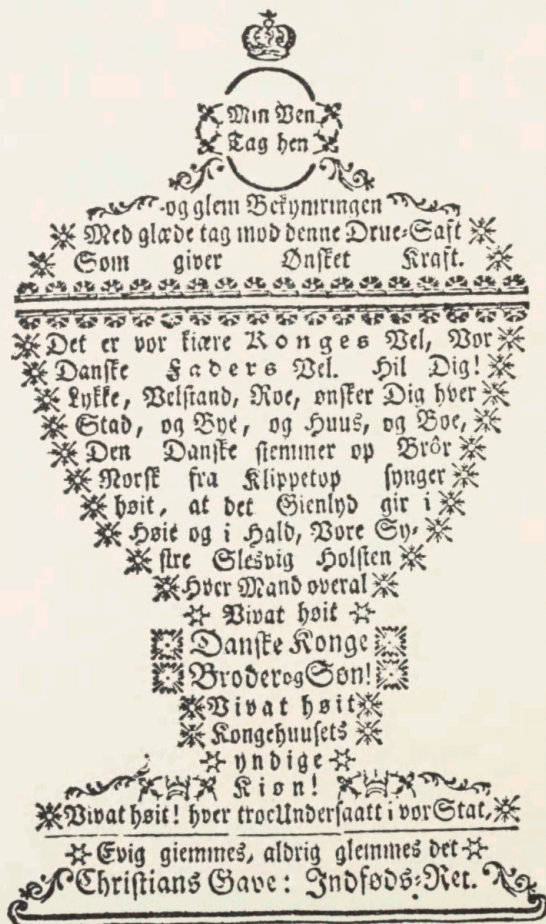 Min Ven
Tag hen
og glem Bekymringen
Med glæde tag imod denne Drue-Saft
Som giver Ønsket Kraft.
Det er vor kiære Konges Vel, Vor
Danske Faders Vel. Hil Dig!
Lykke, Velstand, Roe, ønsker Dig hver
Stad, og Bye, og Huus, og Boe,
Den Danske stemmer op Brôr
Norsk fra Klippetop synger
høit, at det Gienlyd gir i
Høie og i Hald, Vore Sy-
stre Slesvig Holsten
Hver Mand overal
Vivat høit
Danske Konge
Broder og Søn!
Vivat høit
Kongehuusets
yndige
Kiøn!
Vivat høit! hver troe Undersaatt i vor Stat,
Evig giemmes, aldrig glemmes det
Christians Gave: Indføds-Ret.